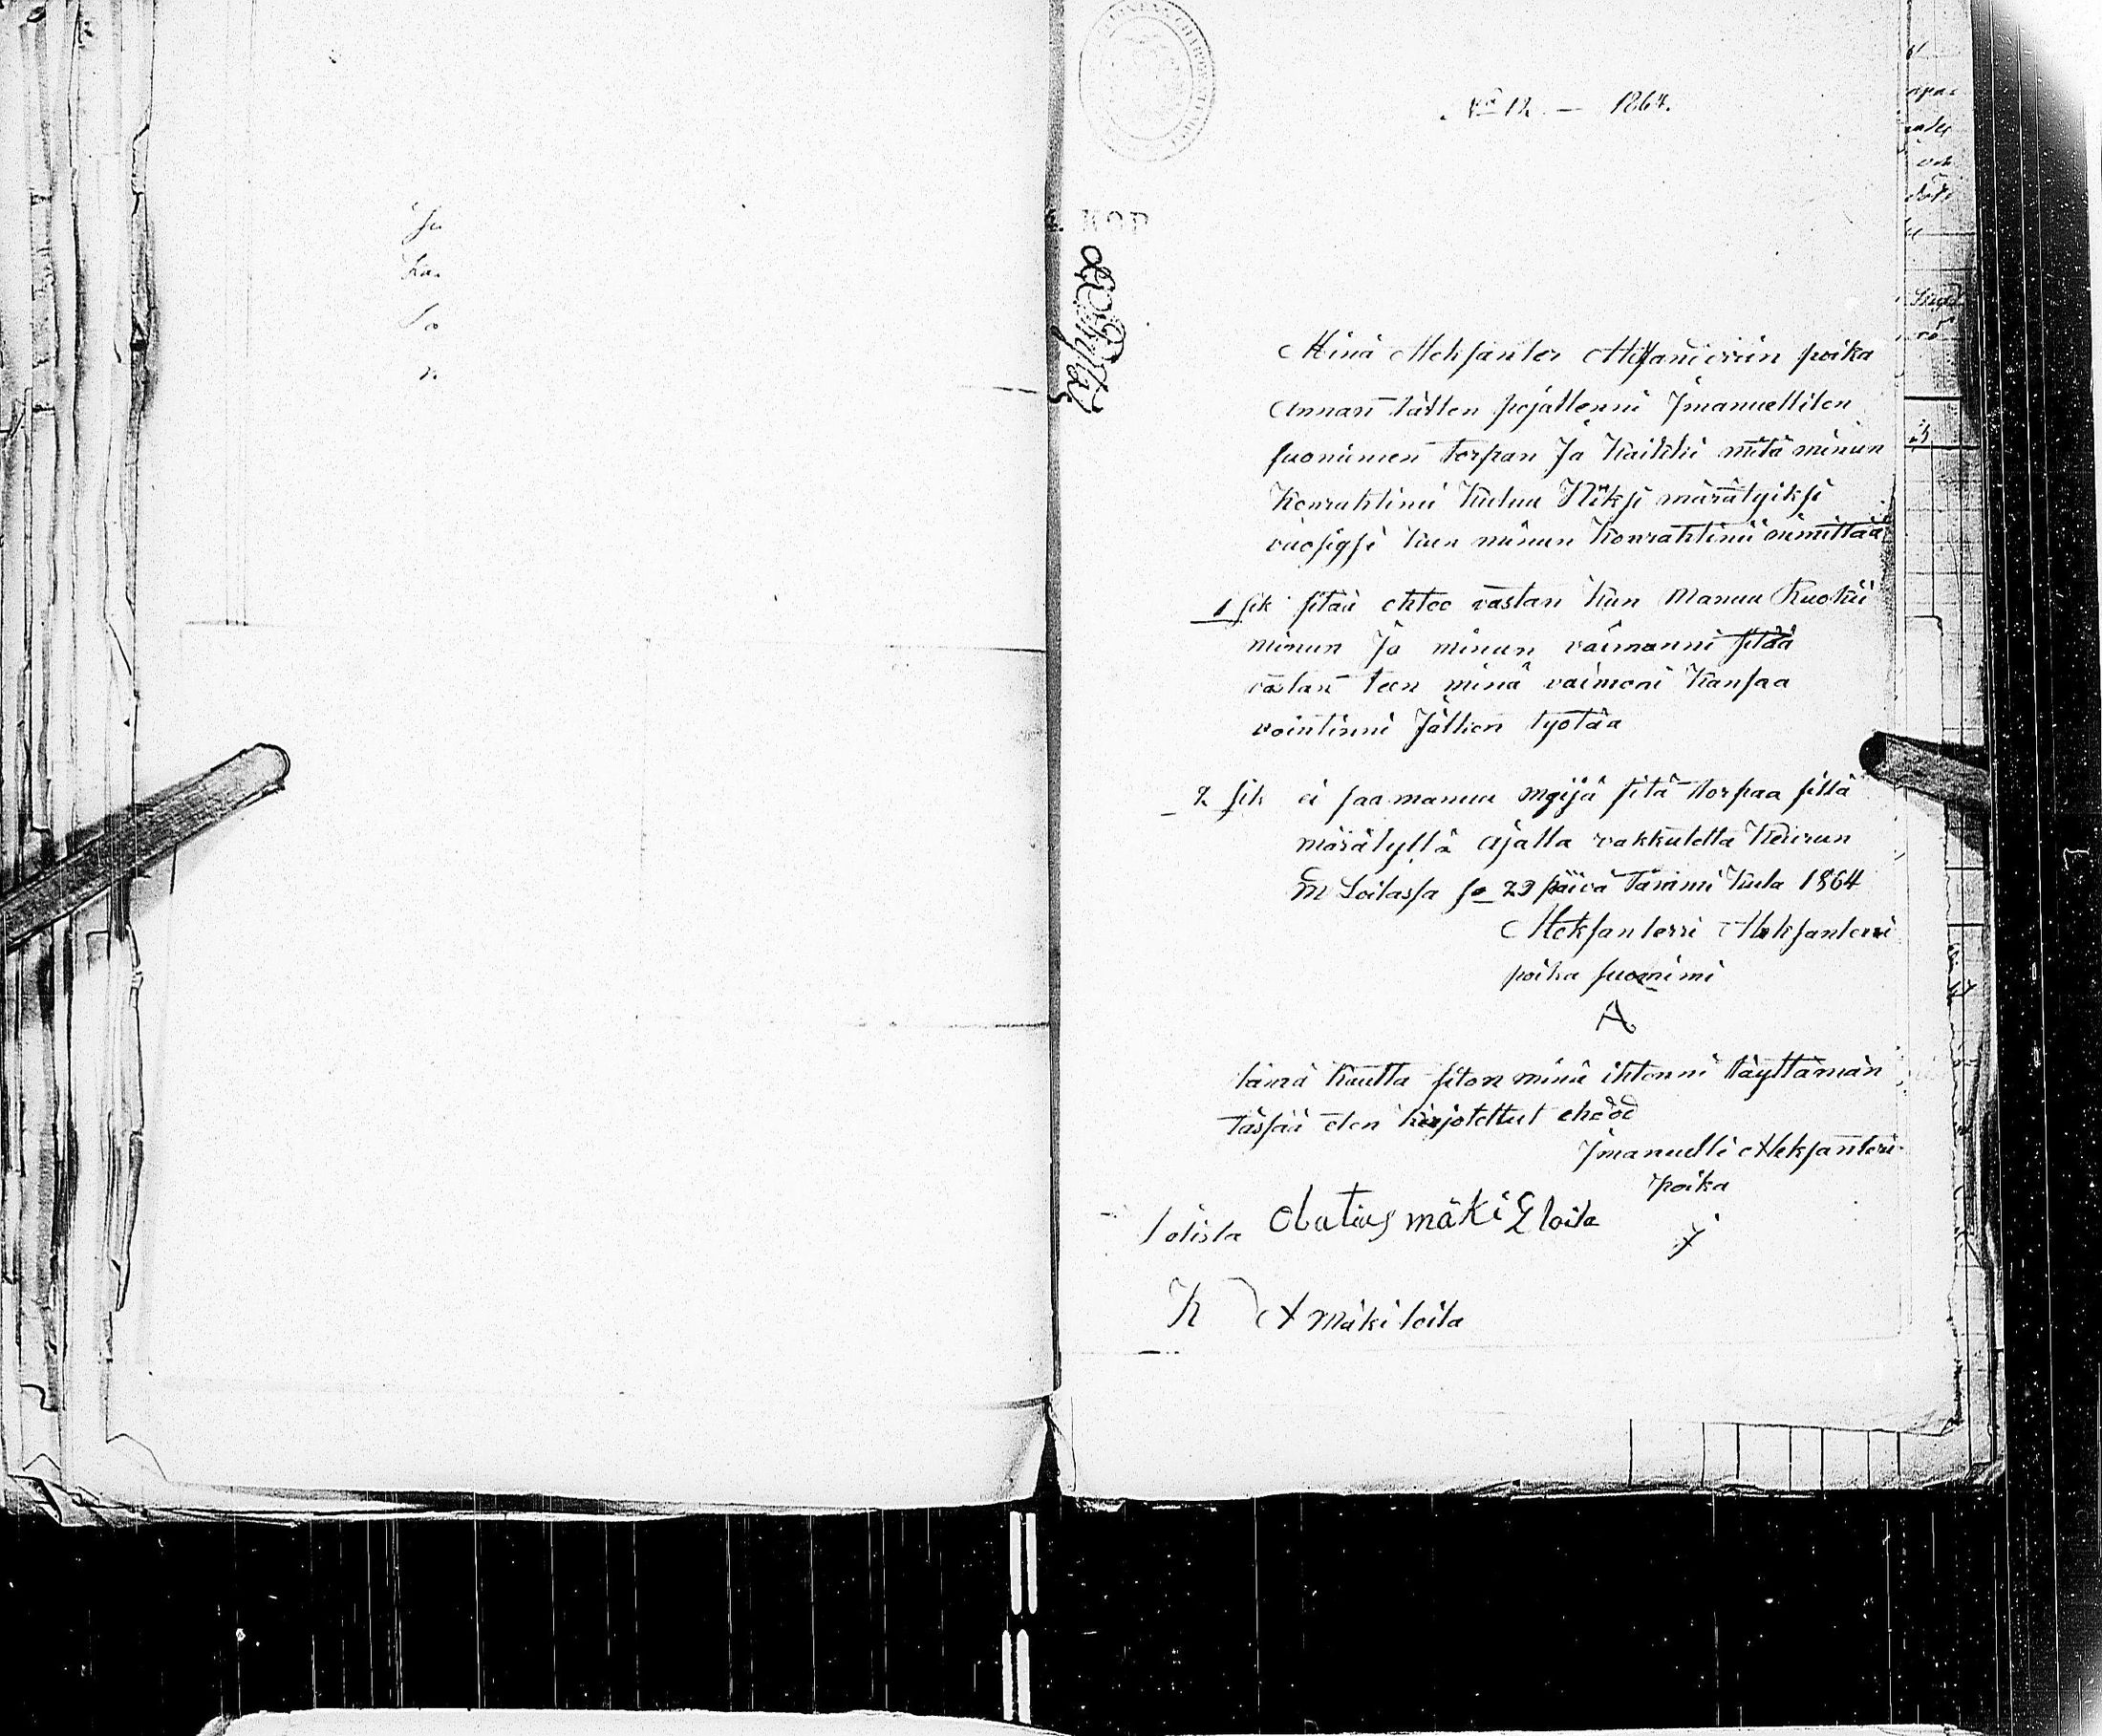 No 12. — 1864.
Minä Aleksanter Aleksanterin poika
Annan tätten pojallenni Imanuellilen
suonimen torpan Ja Kaikki mitä minun
Konrahtini Kuluu Niiksi märätyiksi
vuosigsi kun minun Konrahtinii nimittää
1 sik sitää ehtoo vastan kun Manuu Ruokii
minun Ja minun vaimonni sitää
vastan teen minä vaimoni Kansaa
vointinni Jälken työtää
2 sik ei saa manuu myijä sitä torpaa sillä
märätyllä ajalla vakkutetta Keurun
M Loilassa se 29 päivä Tammi kuta 1864
Aleksanterri Aleksanterri
poika suonimi
A
tämä Kautta siton minä ihtenni täyttämän
tässää olen kirjotettut ehdod
Imanuelli Aleksanteri
poika
J
Totista Obatius mäki Eloila
K A Mäki loila